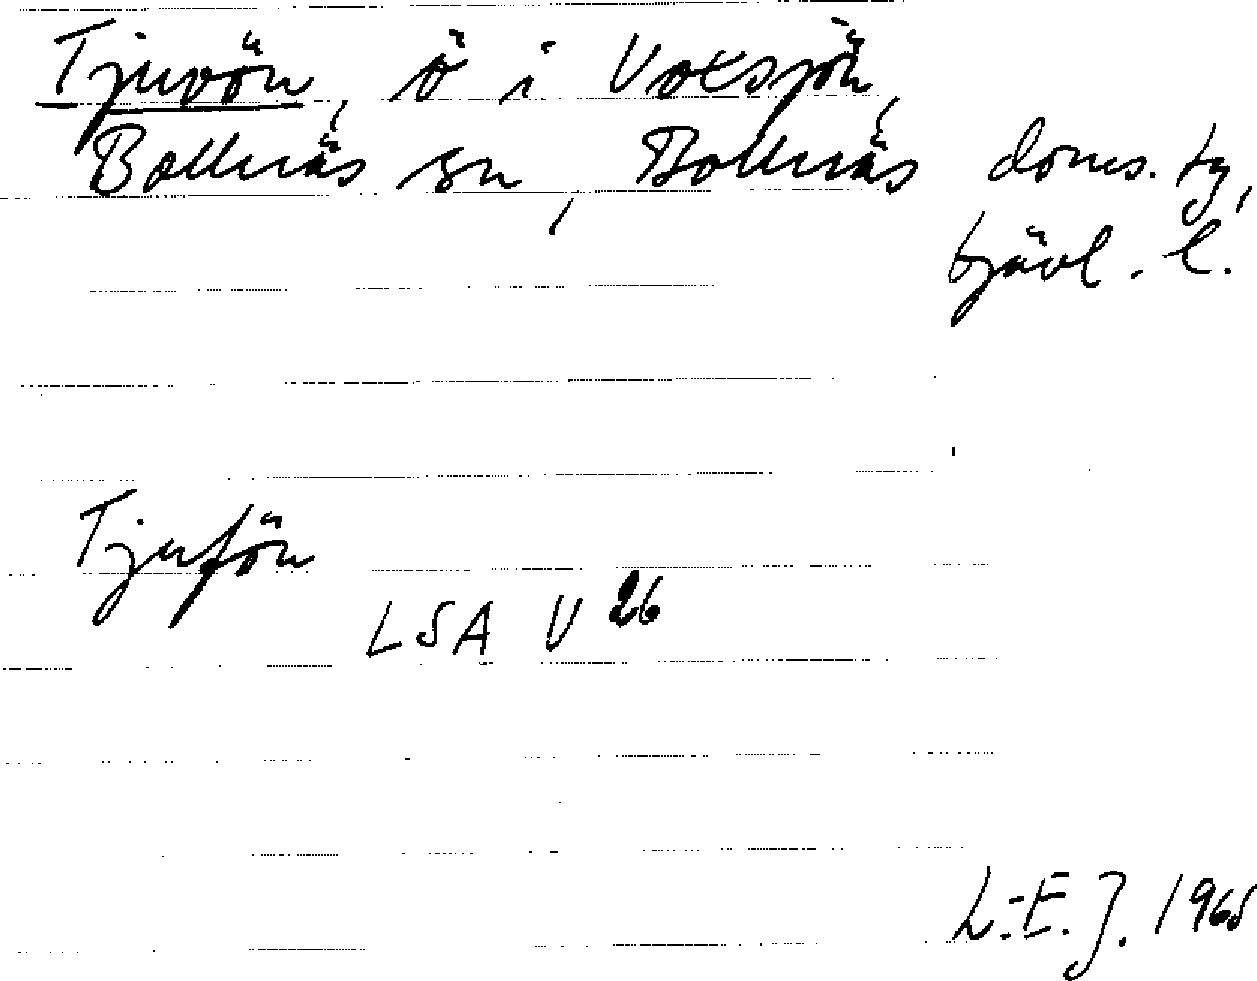 Tjuvön, ö i Voxsjön,
Bollnäs sn, Bollnäs doms. tg,
Gävl. l.
Tjufön
LSA V 26
L.-E. J. 1965